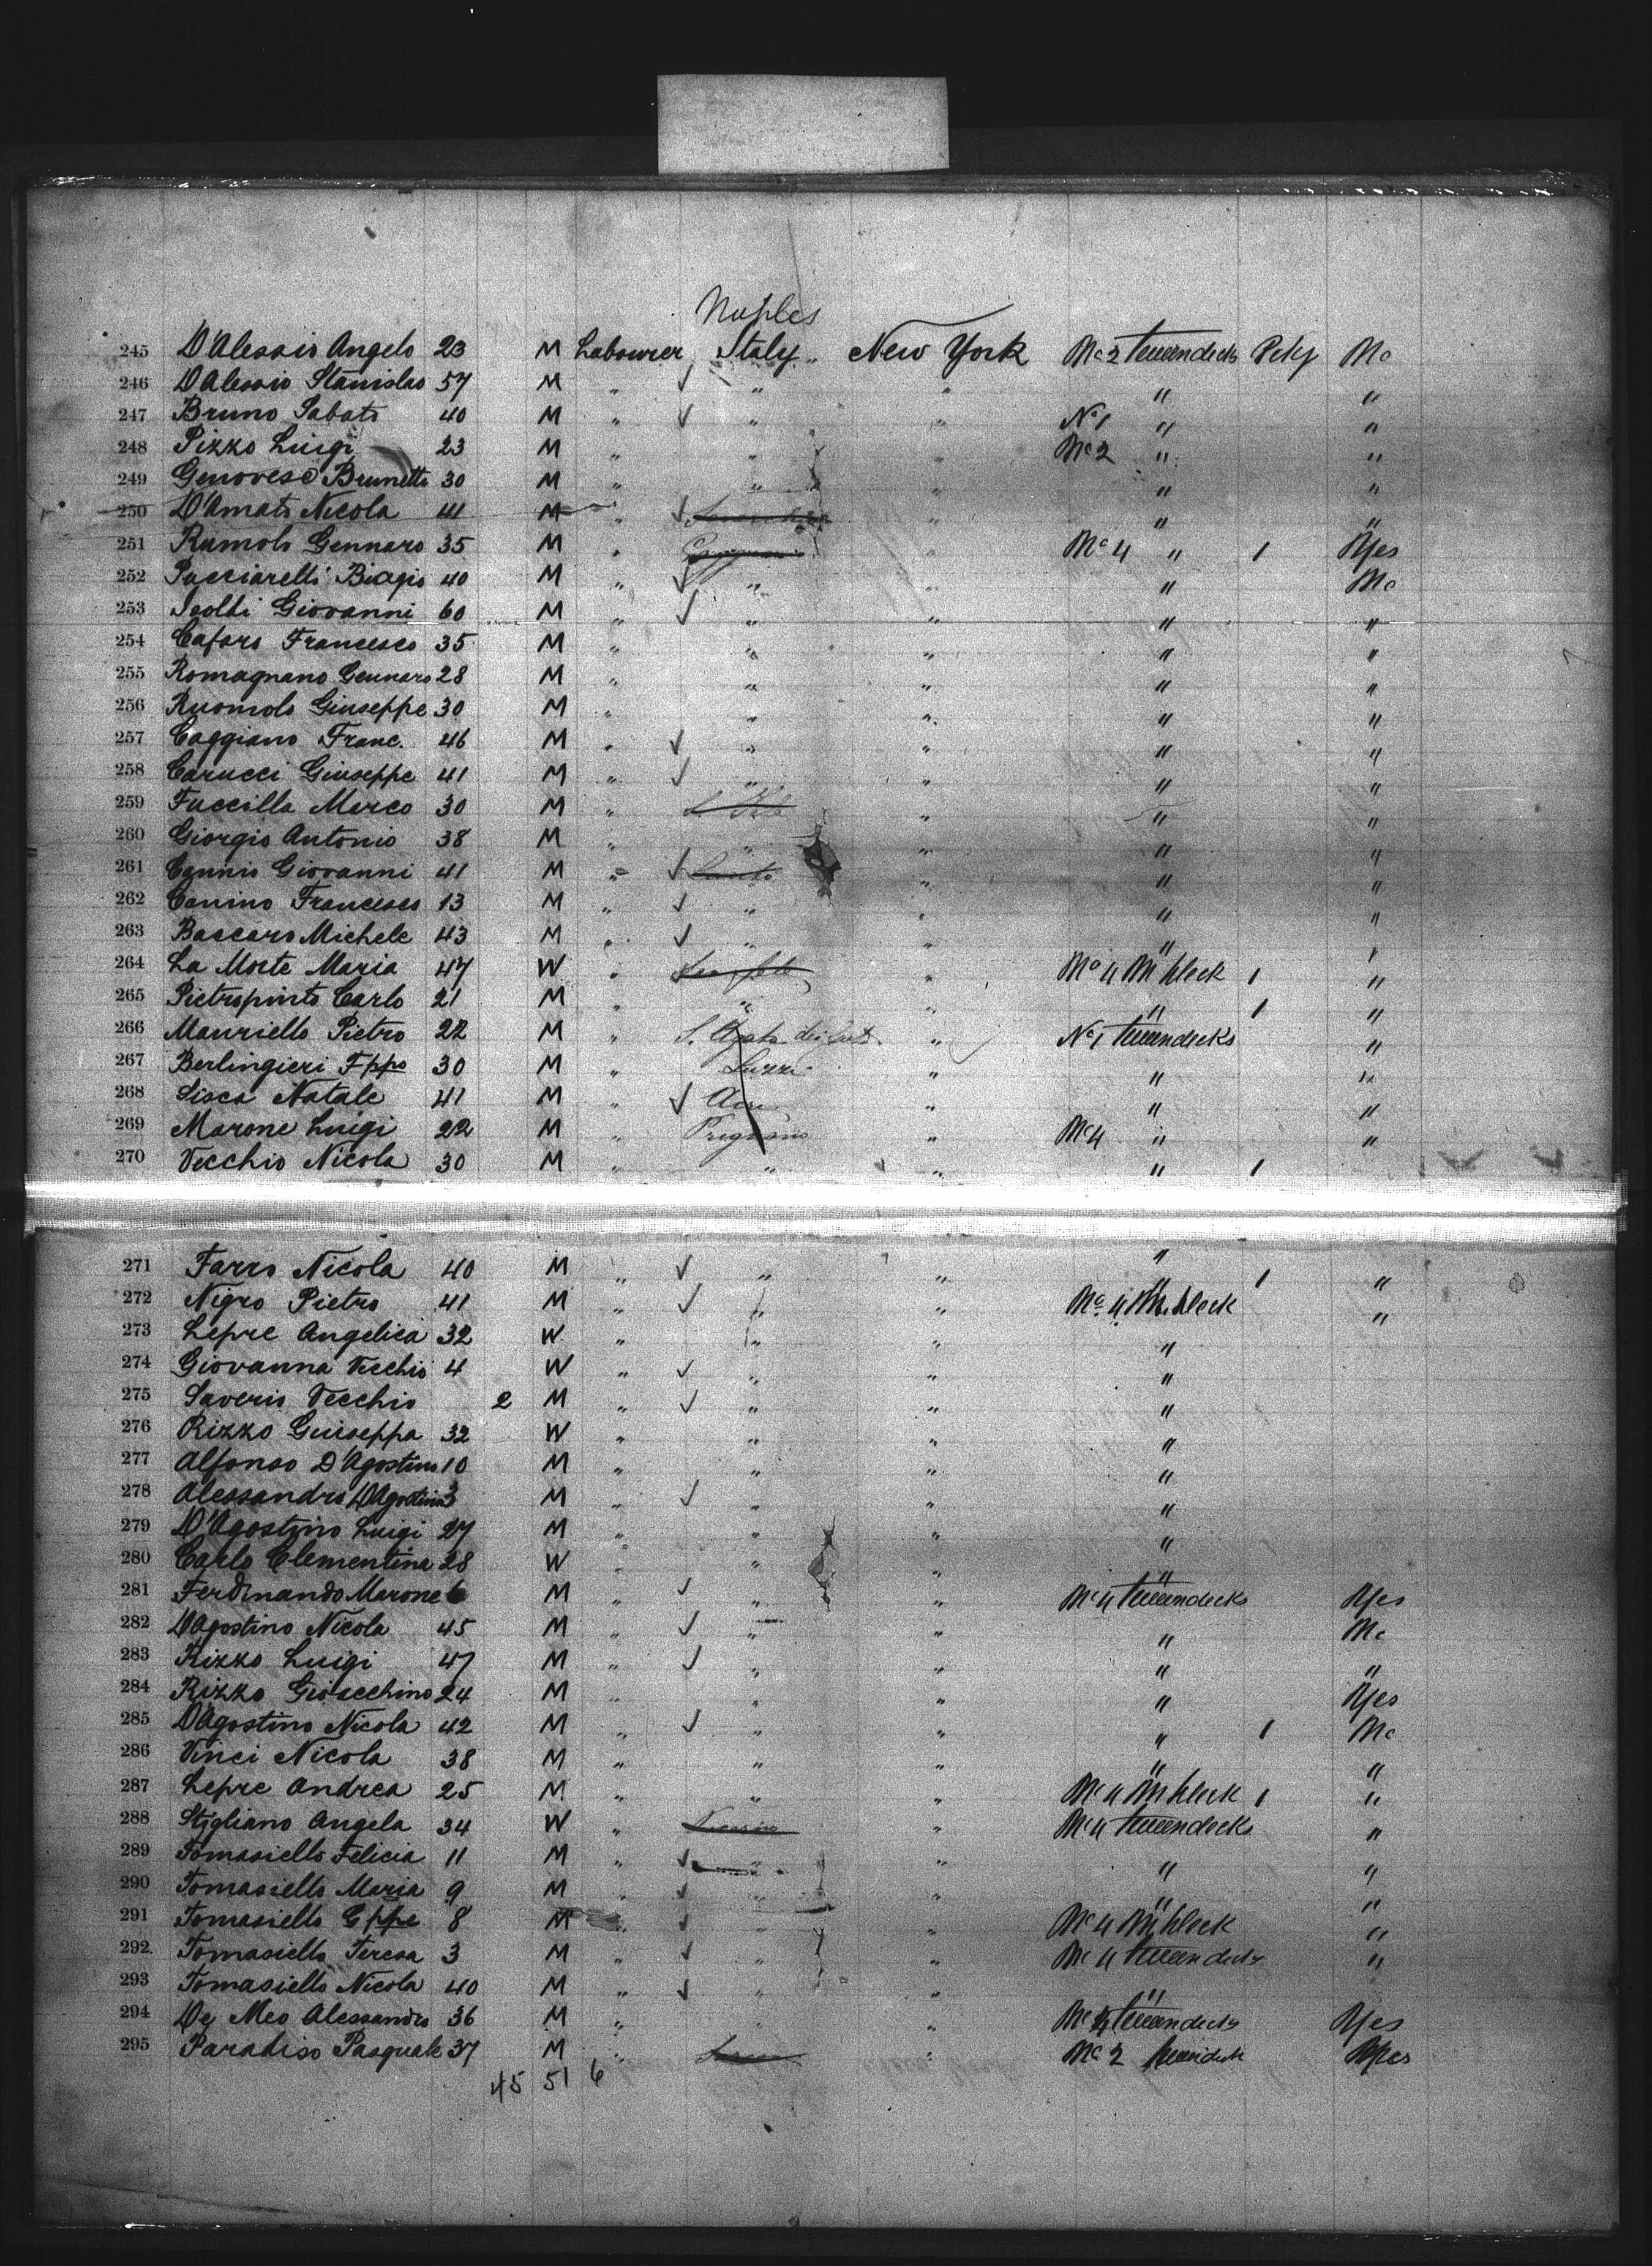 Naples
245 D'Alessio Angelo 23 M Labourer Italy " New York No 2 Tweendecks Pckg No
246 D'Alessio Stanislao 57 M " ✓ " " " "
247 Bruno Sabato 40 M " ✓ " " No 1 " "
248 Pizzo Luigi 23 M " " " No 2 " "
249 Genovese Brunetto 30 M " " " " "
250 D'Amato Nicola 41 M " ✓ " " "
251 Rumolo Gennaro 35 M " No 4 " 1 Yes
252 Pucciarelli Biagio 40 M " ✓ " " No
253 Isoldi Giovanni 60 M " ✓ " " " "
254 Cafaro Francesco 35 M " " " " "
255 Romagnano Gennaro 28 M " " " " "
256 Ruomolo Giuseppe 30 M " " " " "
257 Caggiano Franc. 46 M " ✓ " " " "
258 Carucci Giuseppe 41 M " ✓ " " " "
259 Fuccilla Marco 30 M " " " "
260 Giorgio Antonio 38 M " " " " "
261 Cannio Giovanni 41 M " ✓ " " "
262 Canino Francesco 13 M " ✓ " " " "
263 Baccaro Michele 43 M " ✓ " " " "
264 La Morte Maria 47 W " " No 4 1 "
265 Pietropinto Carlo 21 M " " " " 1 "
266 Mauriello Pietro 22 M " S. Agata dei Goti " No 1 Tweendecks "
267 Berlingieri Fppo 30 M " Luzzi " " "
268 Sisca Natale 41 M " ✓ Acri " " "
269 Marone Luigi 22 M " " No 4 " "
270 Vecchio Nicola 30 M " " " " 1
271 Farro Nicola 40 M " ✓ " " " 1 "
272 Nigro Pietro 41 M " ✓ " " No 4 "
273 Lepre Angelica 32 W " " " "
274 Giovanna Vecchio 4 W " ✓ " " "
275 Saverio Vecchio 2 M " ✓ " " "
276 Rizzo Guiseppa 32 W " " " "
277 Alfonso D'Agostino 10 M " " " "
278 Alessandro D'Agostino 3 M " ✓ " " "
279 D'Agostino Luigi 27 M " " " "
280 Carlo Clementina 28 W " " " "
281 Ferdinando Marone 6 M " ✓ " " No 4 Tweendecks Yes
282 D'Agostino Nicola 45 M " ✓ " " " No
283 Rizzo Luigi 47 M " ✓ " " " "
284 Rizzo Gioacchino 24 M " " " " Yes
285 D'Agostino Nicola 42 M " ✓ " " " 1 No
286 Vinci Nicola 38 M " " " " "
287 Lepre Andrea 25 M " " " No 4 1 "
288 Stigliano Angela 34 W " " No 4 Tweendecks "
289 Tomasiello Felicia 11 M " ✓ " " " "
290 Tomasiello Maria 9 M " ✓ " " " "
291 Tomasiello Gppe 8 M " ✓ " " No 4 "
292. Tomasiello Teresa 3 M " ✓ " " No 4 Tweendecks "
293 Tomasiello Nicola 40 M " ✓ " " "
294 De Meo Alessandro 36 M " " No 4 Tweendecks Yes
295 Paradiso Pasquale 37 M " " No 2 Yes
45 51 6